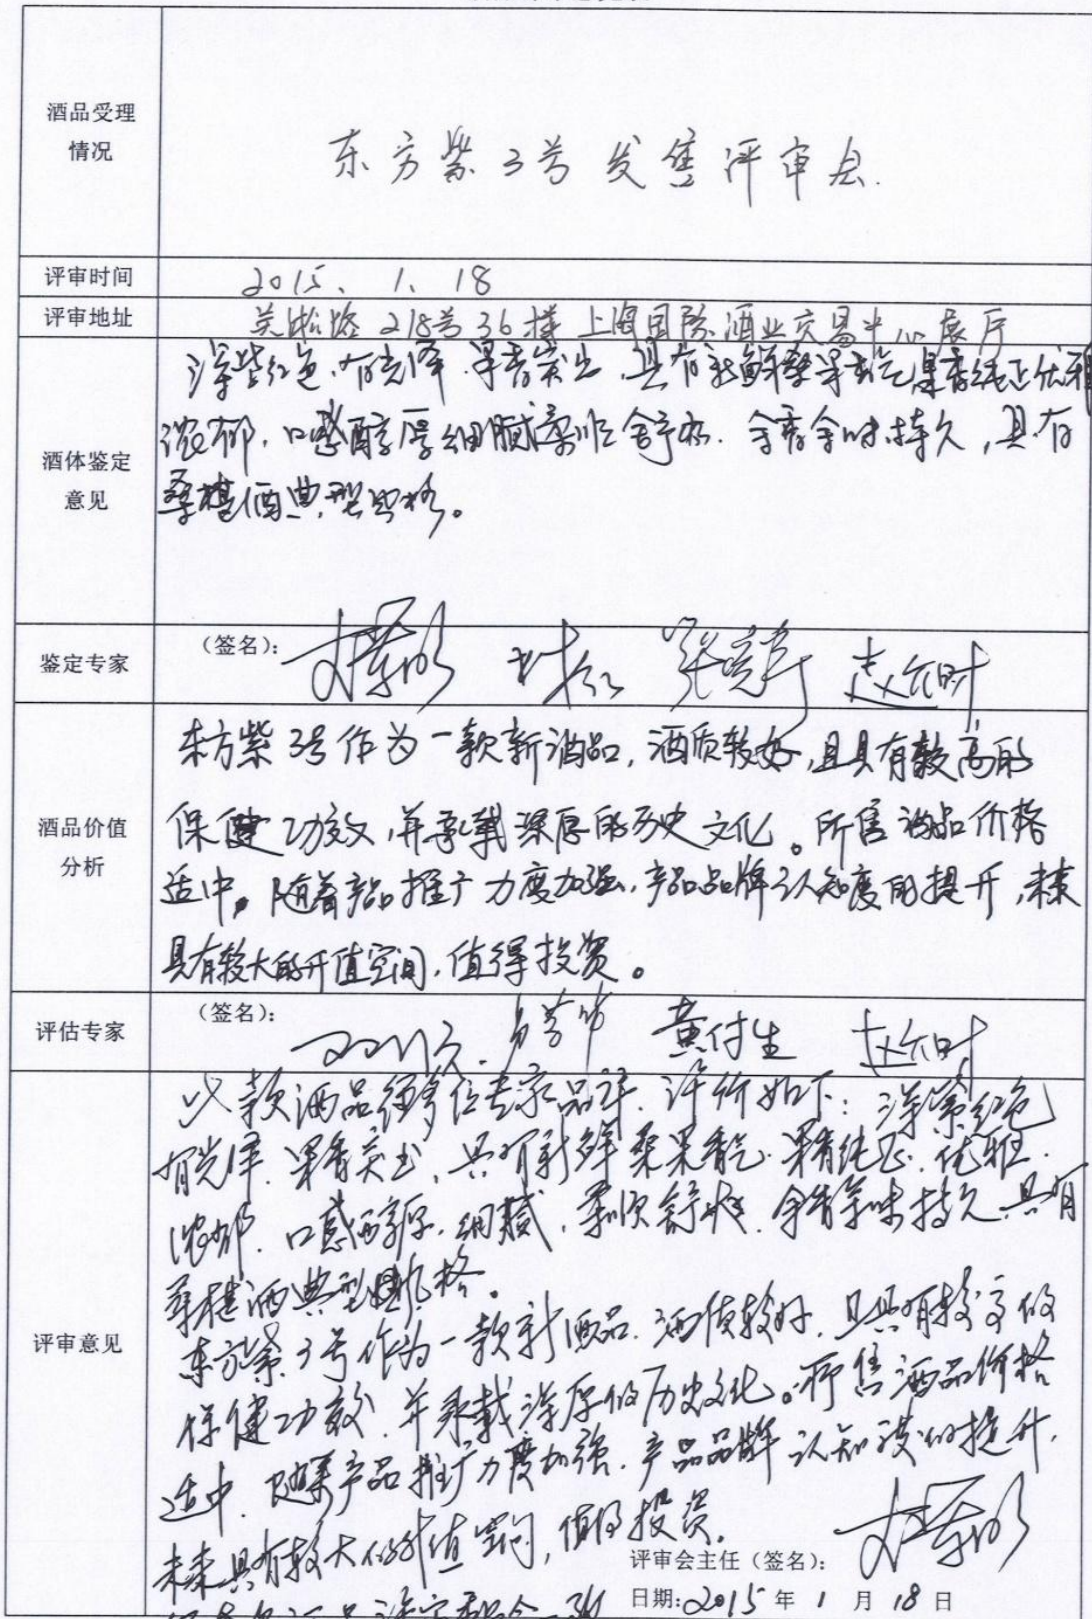 酒品受理
情况
东方紫3号发售评审会.
评审时间
2015、1、18
评审地址
吴淞路218号36楼上海国际酒业交易中心展厅
酒体鉴定
意见
深紫红色,有光泽.果香突出,具有新鲜桑果香气果香纯正优雅
浓郁,口感醇厚细腻柔顺舒顺.余香余味持久,具有
桑椹酒典型风格。
鉴定专家
(签名):
张 赵
酒品价值
分析
东方紫3号作为一款新酒品,酒质较好,且具有较高的
保健功效,并承载深厚的历史文化。所售酒品价格
适中。随着产品推广力度加强,产品品牌认知度的提升,未来
具有较大的升值空间,值得投资。
评估专家
(签名):
黄付生 赵
评审意见
此款酒品经多位专家品评.评价如下:深紫红色
有光泽.果香突出,具有新鲜桑果香气.果香纯正.优雅.
浓郁.口感醇厚.细腻,柔顺舒顺.余香余味持久.具有
桑椹酒典型风格.
东方紫3号作为一款新酒品.酒质较好,且具有较高的
保健功效.并承载深厚的历史文化。所售酒品价格
适中.随着产品推广力度加强.产品品牌认知度的提升.
未来具有较大的升值空间,值得投资.
评审会主任(签名):
日期:2015年1月18日